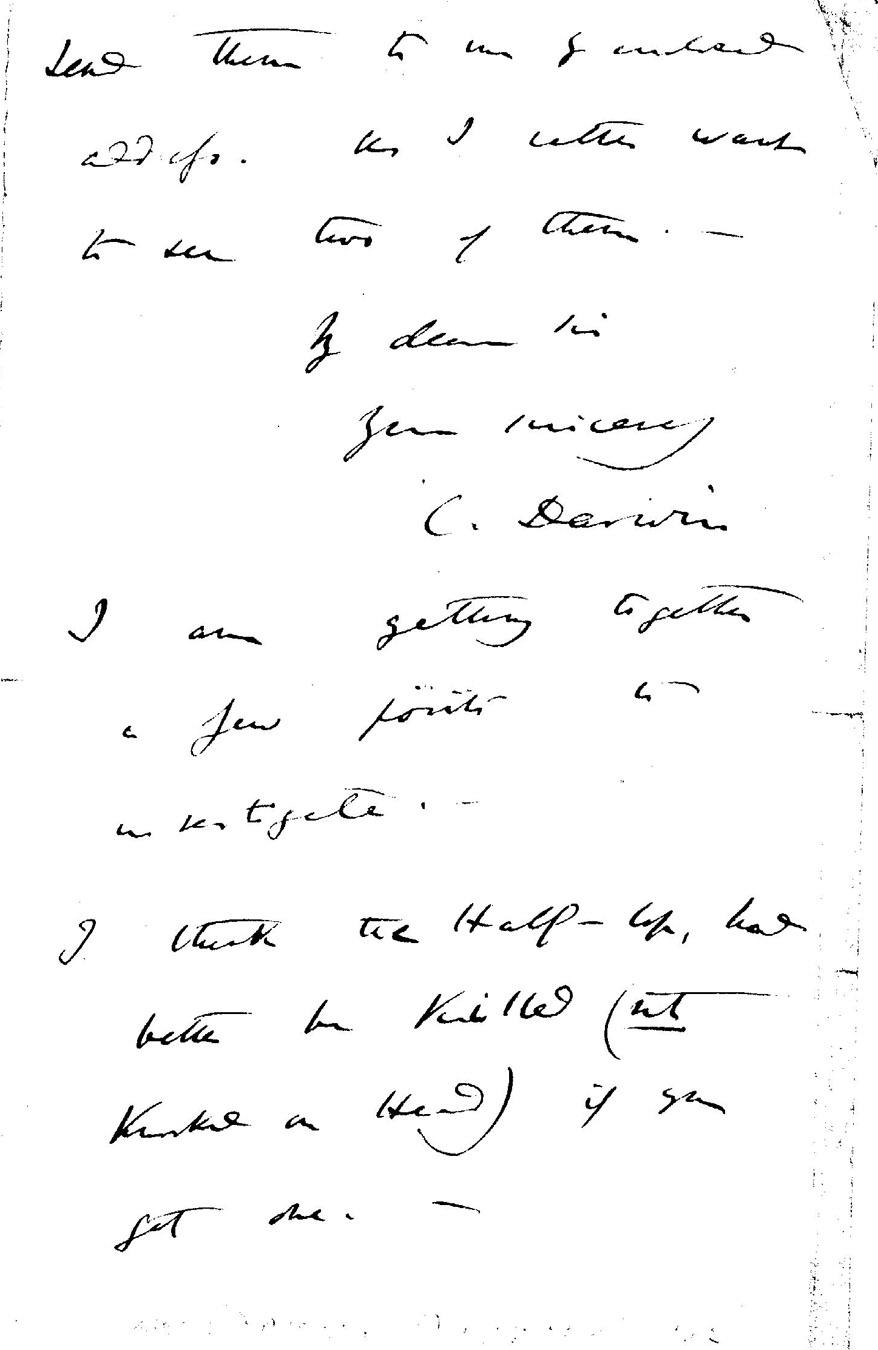 send them to me by enclosed
address. as I rather want
to see two of them. —
My dear Sir
Yours sincerely
C. Darwin
I am getting together
a few points to
investigate. —
I think the Half-lop, had
better be killed (not
Knocked on Head) if you
get one. —